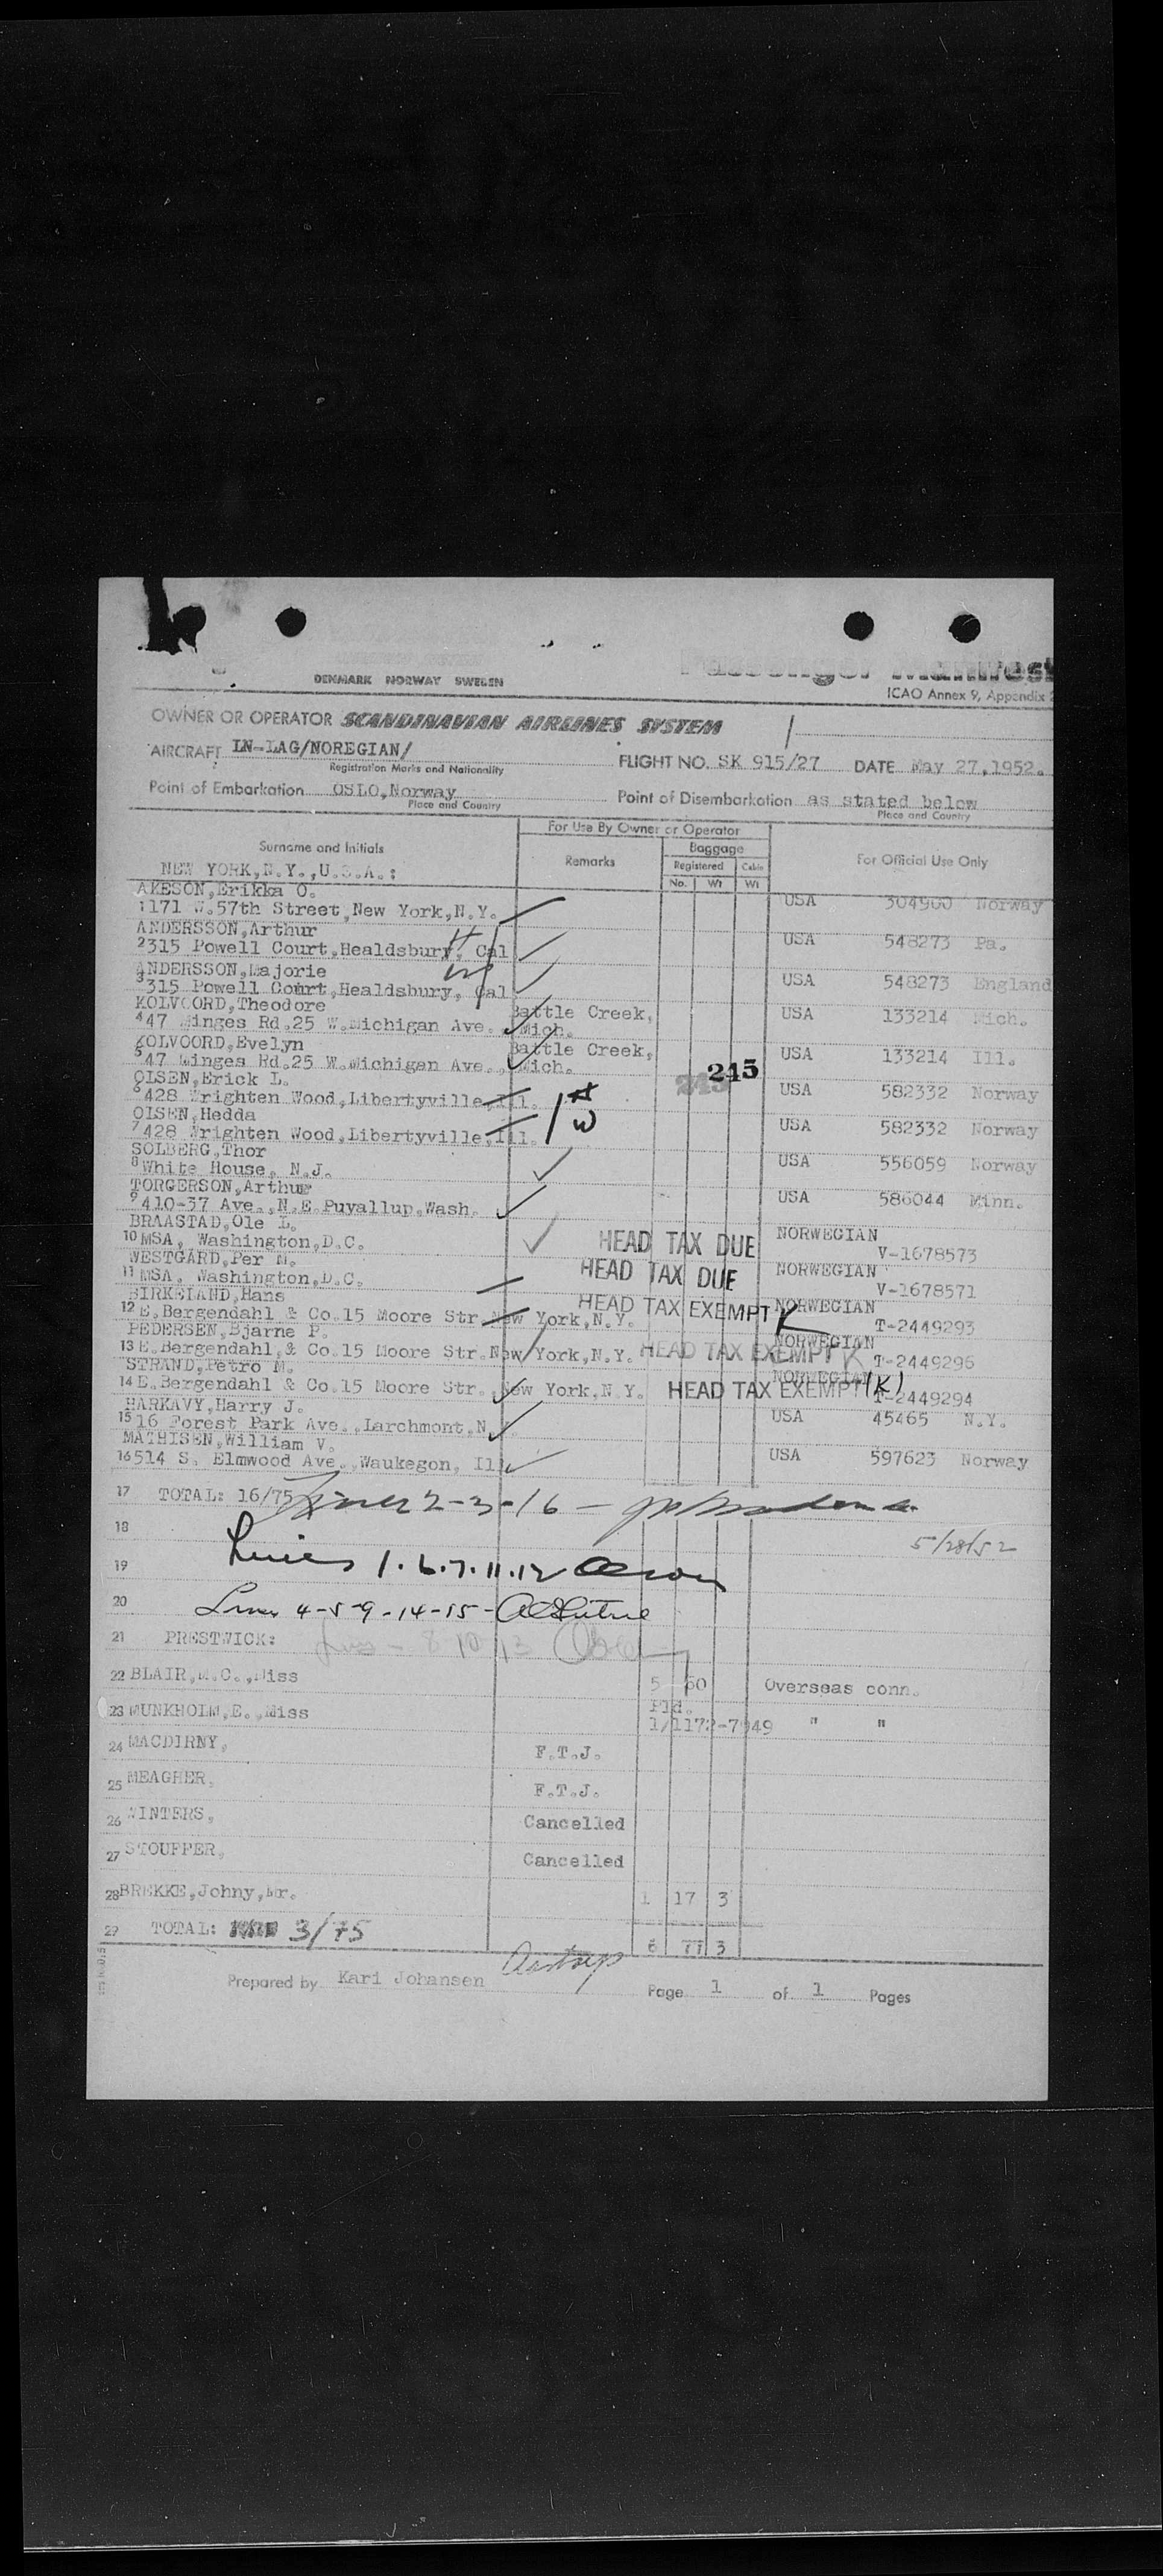 Passenger Manifest
DENMARK NORWAY SWEDEN
ICAO Annex 9, Appendix
OWNER OR OPERATOR SCANDINAVIAN AIRLINES SYSTEM
AIRCRAFT LN-LAG/NOREGIAN/ FLIGHT NO. SK 915/27 DATE May 27,1952.
Registration Marks and Nationality
Point of Embarkation OSLO,Norway Point of Disembarkation as stated below
Place and Country Place and Country
For Use By Owner or Operator
Surname and Initials Remarks Baggage For Official Use Only
Registered Cabin
No. Wt Wt
NEW YORK,N.Y.,U.S.A.:
AKESON,Erikka O.
1 171 W.57th Street,New York,N.Y. USA 304900 Norway
ANDERSSON,Arthur
2 315 Powell Court,Healdsbury, Cal USA 548273 Pa.
ANDERSSON,Majorie
3 315 Powell Court,Healdsbury, Cal USA 548273 England
KOLVOORD,Theodore Battle Creek,
4 47 Minges Rd.25 W.Michigan Ave., Mich. USA 133214 Mich.
KOLVOORD,Evelyn Battle Creek,
5 47 Minges Rd.25 W.Michigan Ave., Mich. USA 133214 Ill.
245 245
OLSEN,Erick L.
6 428 Wrighten Wood,Libertyville,Ill. USA 582332 Norway
OLSEN,Hedda
7 428 Wrighten Wood,Libertyville,Ill. USA 582332 Norway
SOLBERG,Thor
8 White House, N.J. USA 556059 Norway
TORGERSON,Arthur
9 410-37 Ave.,N.E.Puyallup,Wash. USA 586044 Minn.
BRAASTAD,Ole L.
10 MSA, Washington,D.C. HEAD TAX DUE NORWEGIAN V-1678573
WESTGÅRD,Per M.
11 MSA, Washington,D.C. HEAD TAX DUE NORWEGIAN V-1678571
BIRKELAND,Hans
12 E.Bergendahl & Co.15 Moore Str.New York,N.Y. HEAD TAX EXEMPT K NORWEGIAN T-2449293
PEDERSEN,Bjarne P.
13 E.Bergendahl,& Co.15 Moore Str.New York,N.Y. HEAD TAX EXEMPT K NORWEGIAN T-2449296
STRAND,Petro M.
14 E.Bergendahl & Co.15 Moore Str.,New York,N.Y. HEAD TAX EXEMPT (K) NORWEGIAN T-2449294
HARKAVY,Harry J.
15 16 Forest Park Ave.,Larchmont,N. USA 45465 N.Y.
MATHISEN,William V.
16 514 S. Elmwood Ave.,Waukegon, Ill USA 597623 Norway
17 TOTAL: 16/75 Lines 2-3-16 -
18 5/28/52
19 Lines 1.6.7.11.12
20 Lines 4-5-9-14-15-
21 PRESTWICK: 8 10 13
22 BLAIR,M.C.,Miss 5 60 Overseas conn.
23 MUNKHOLM,E.,Miss Pld. 1/1172-7949 " "
24 MACDIRNY, F.T.J.
25 MEAGHER, F.T.J.
26 WINTERS, Cancelled
27 STOUFFER, Cancelled
28 BREKKE,Johny,Mr. 1 17 3
29 TOTAL: 3/75 6 77 3
Prepared by Kari Johansen Page 1 of 1 Pages